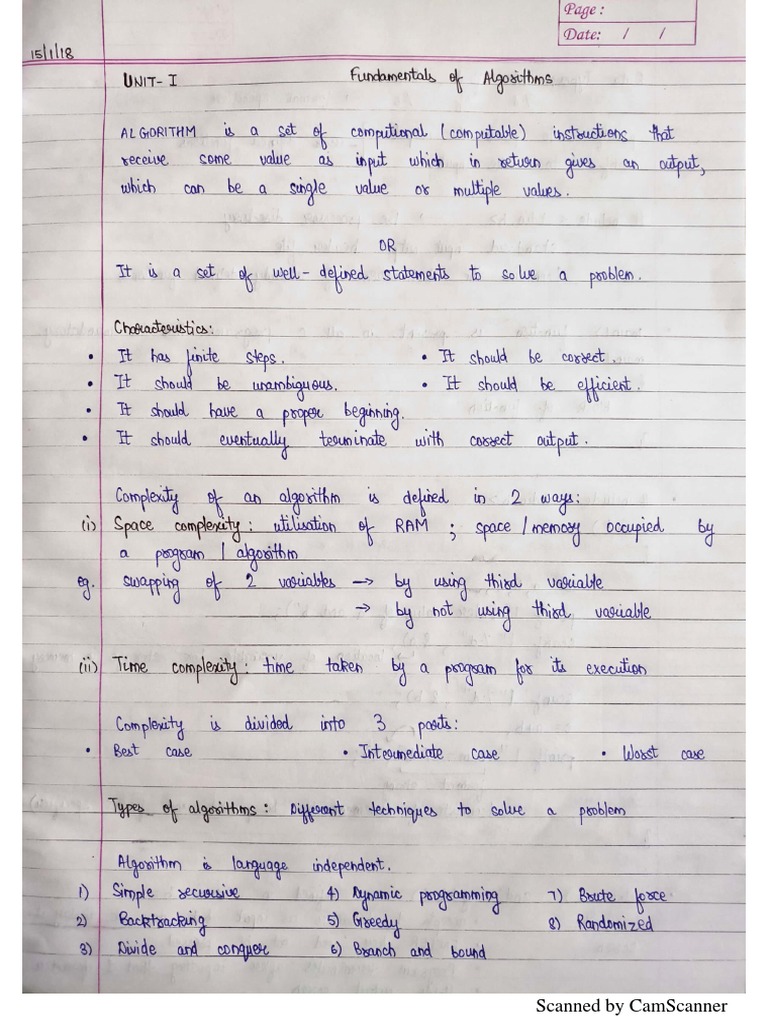 Page :
Date: / /
15/1/18
UNIT- I Fundamentals of Algorithms
ALGORITHM is a set of computional (computable) instructions that
receive some value as input which in return gives an output,
which can be a single value or multiple values.
OR
It is a set of well-defined statements to solve a problem.
Characteristics:
• It has finite steps. • It should be correct.
• It should be unambiguous. • It should be efficient.
• It should have a proper beginning.
• It should eventually terminate with correct output.
Complexity of an algorithm is defined in 2 ways:
(i) Space complexity: utilisation of RAM ; space/memory occupied by
a program / algorithm
eg. swapping of 2 variables → by using third variable
→ by not using third variable
(ii) Time complexity: time taken by a program for its execution
Complexity is divided into 3 parts:
• Best case • Intermediate case • Worst case
Types of algorithms: Different techniques to solve a problem
Algorithm is language independent.
1) Simple recursive 4) Dynamic programming 7) Brute force
2) Backtracking 5) Greedy 8) Randomized
3) Divide and conquer 6) Branch and bound
Scanned by CamScanner